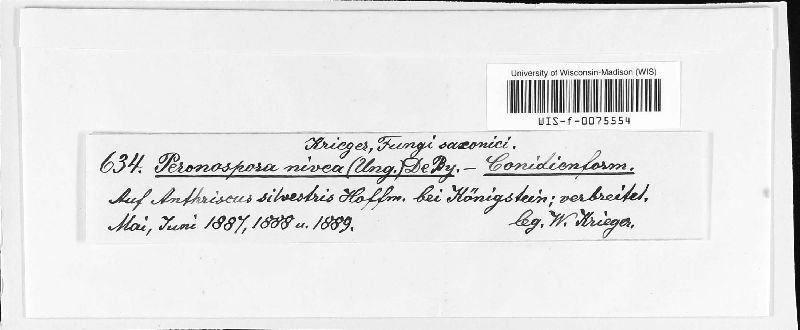 University of Wisconsin-Madison (WIS)
WIS-f-0075554
Krieger, Fungi saxonici.
634. Peronospora nivea (Ung.) De By. – Conidienform.
Auf Anthriscus silvestris Hoffm. bei Königstein; verbreitet.
Mai, Juni 1887, 1888 u. 1889. leg. W. Krieger.